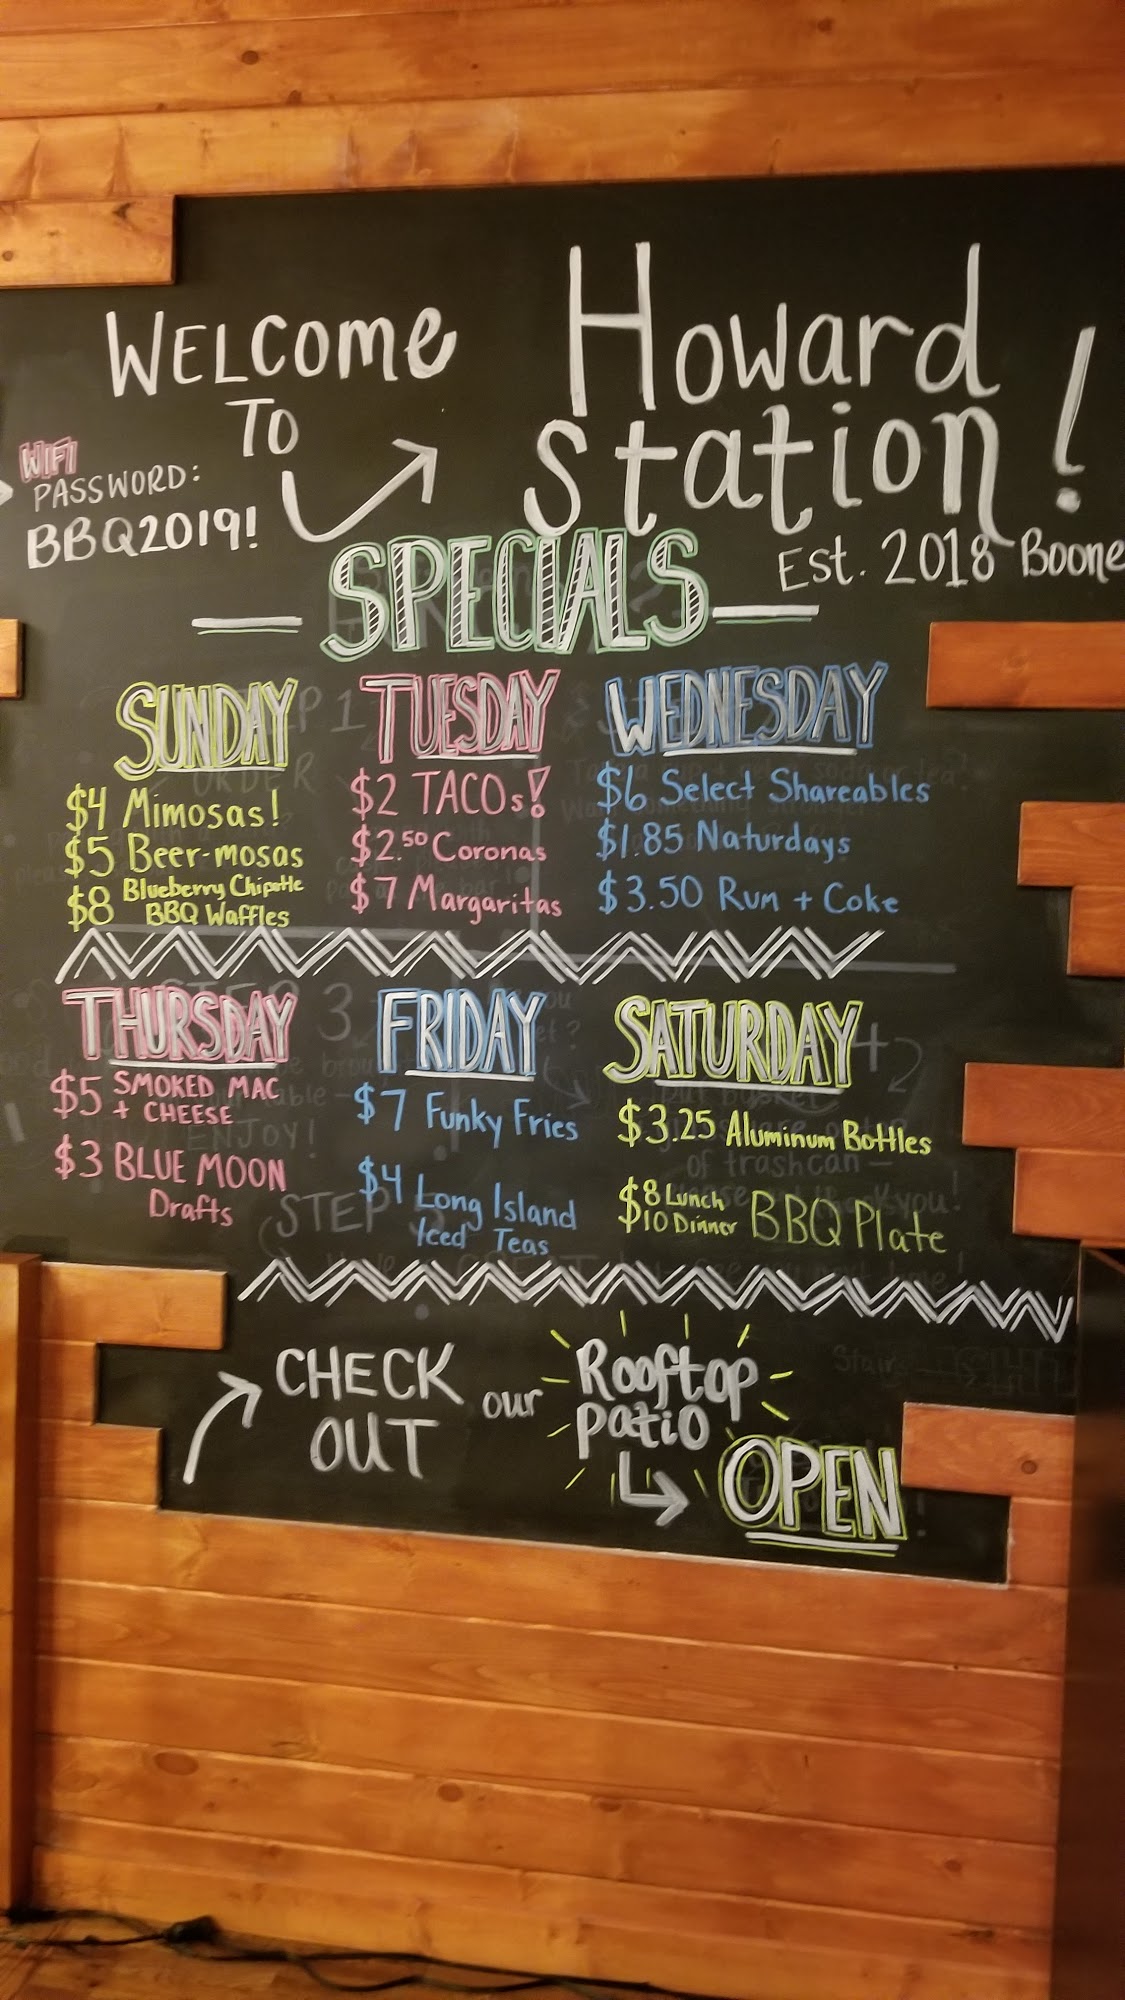 WELCOME
TO
Howard
Station!
WIFI
PASSWORD:
BBQ2019!
Est. 2018 Boone
SPECIALS
SUNDAY
$4 Mimosas!
$5 Beer-mosas
$8 Blueberry Chipotle
BBQ Waffles
TUESDAY
$2 TACOs!
$2.50 Coronas
$7 Margaritas
WEDNESDAY
$6 Select Shareables
$1.85 Naturdays
$3.50 Rum + Coke
THURSDAY
$5 SMOKED MAC
+ CHEESE
$3 BLUE MOON
Drafts
FRIDAY
$7 Funky Fries
$4 Long Island
Iced Teas
SATURDAY
$3.25 Aluminum Bottles
$8 Lunch
$10 Dinner BBQ Plate
CHECK
OUT
our
Rooftop
patio
OPEN
STEP 1
ORDER
STEP 3
ENJOY!
STEP 5
of trashcan